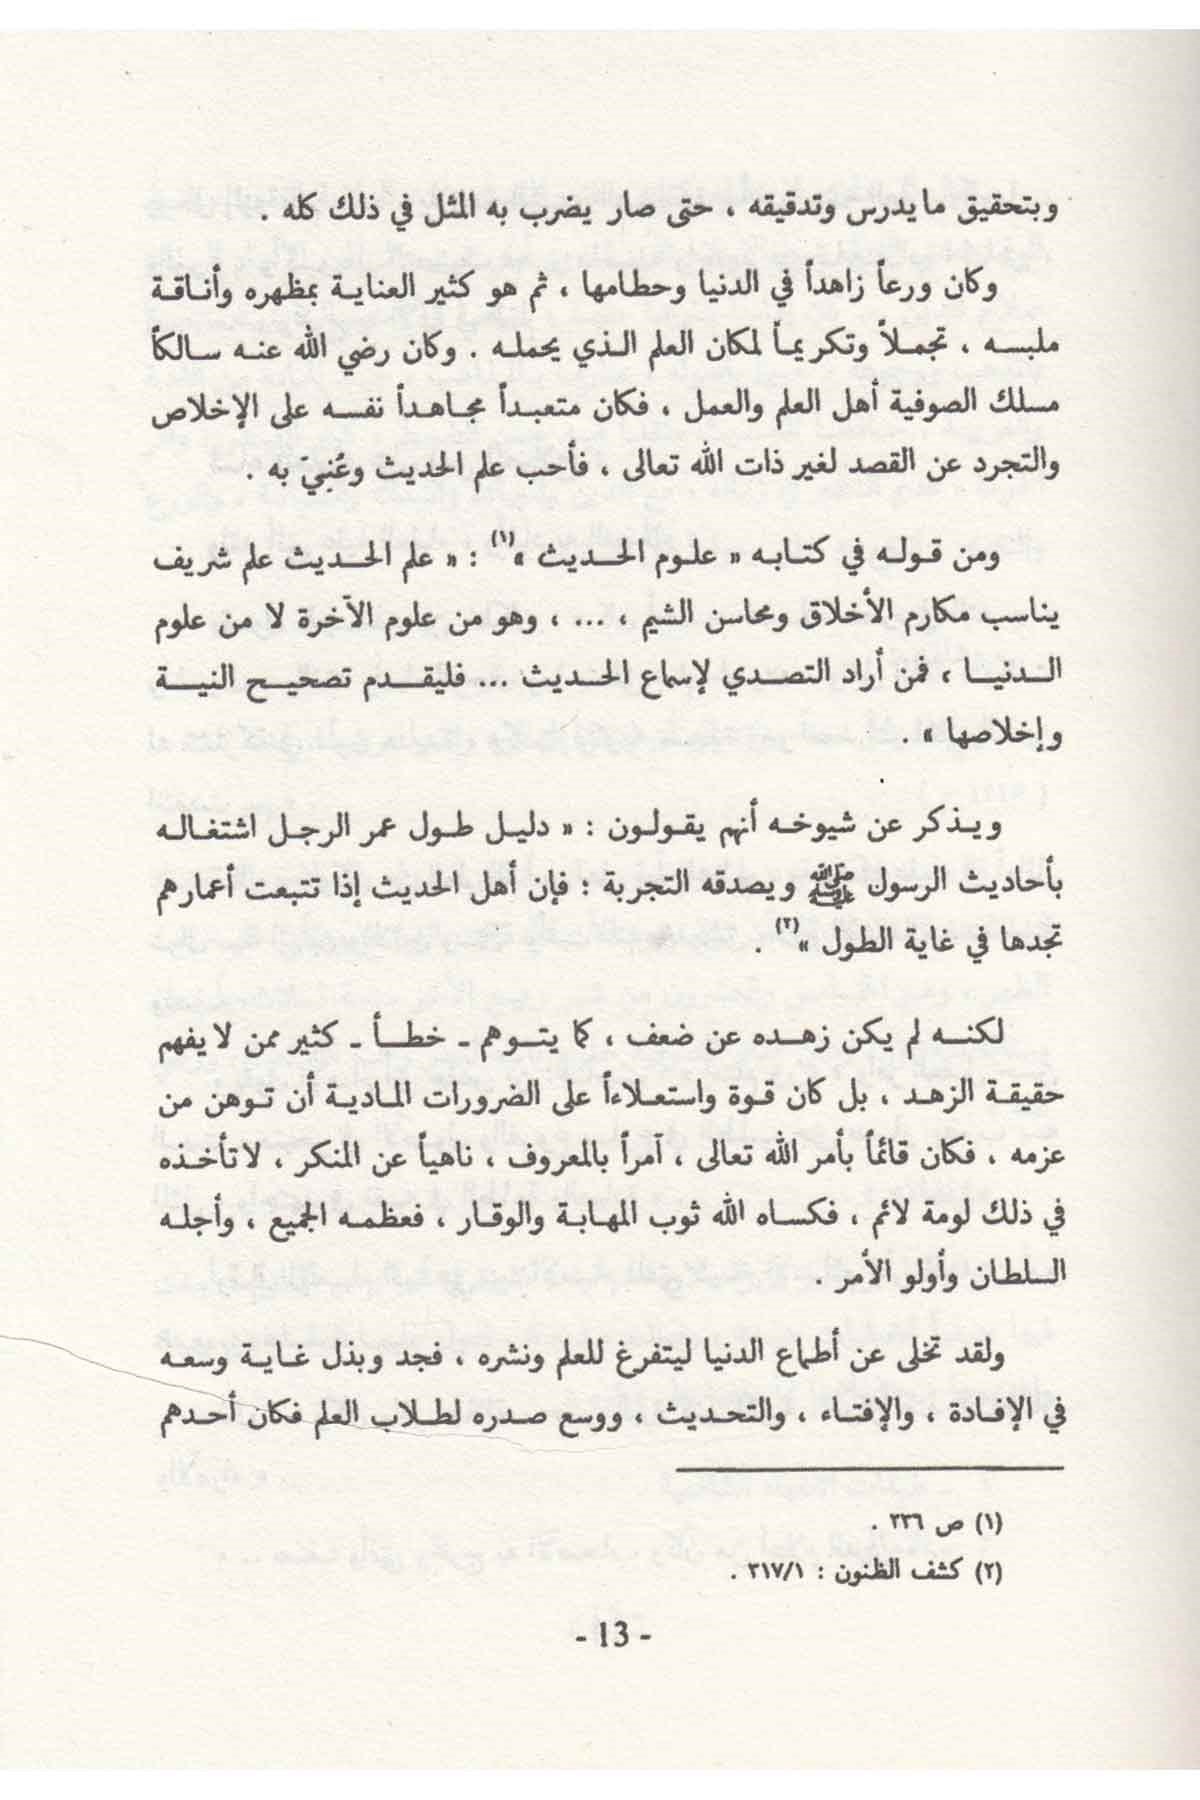 وبتحقيق ما يدرس وتدقيقه ، حتى صار يضرب به المثل في ذلك كله .
وكان ورعاً زاهداً في الدنيا وحطامها ، ثم هو كثير العناية بمظهره وأناقة
ملبسه ، تجملاً وتكريماً لمكان العلم الذي يحمله . وكان رضي الله عنه سالكاً
مسلك الصوفية أهل العلم والعمل ، فكان متعبداً مجاهداً نفسه على الإخلاص
والتجرد عن القصد لغير ذات الله تعالى ، فأحب علم الحديث وعُنِيَ به .
ومن قوله في كتابه « علوم الحديث »(١) : « علم الحديث علم شريف
يناسب مكارم الأخلاق ومحاسن الشيم ، ... ، وهو من علوم الآخرة لا من علوم
الدنيا ، فمن أراد التصدي لإسماع الحديث ... فليقدم تصحيح النية
وإخلاصها » .
ويذكر عن شيوخه أنهم يقولون : « دليل طول عمر الرجل اشتغاله
بأحاديث الرسول ﷺ ويصدقه التجربة : فإن أهل الحديث إذا تتبعت أعمارهم
تجدها في غاية الطول »(٢) .
لكنه لم يكن زهده عن ضعف ، كما يتوهم ـ خطأ ـ كثير ممن لا يفهم
حقيقة الزهد ، بل كان قوة واستعلاءاً على الضرورات المادية أن توهن من
عزمه ، فكان قائماً بأمر الله تعالى ، آمراً بالمعروف ، ناهياً عن المنكر ، لا تأخذه
في ذلك لومة لائم ، فكساه الله ثوب المهابة والوقار ، فعظمه الجميع ، وأجله
السلطان وأولو الأمر .
ولقد تخلى عن أطماع الدنيا ليتفرغ للعلم ونشره ، فجد وبذل غاية وسعه
في الإفادة ، والإفتاء ، والتحديث ، ووسع صدره لطلاب العلم فكان أحدهم
(١) ص ٢٣٦ .
(٢) كشف الظنون : ٣١٧/١ .
- 13 -